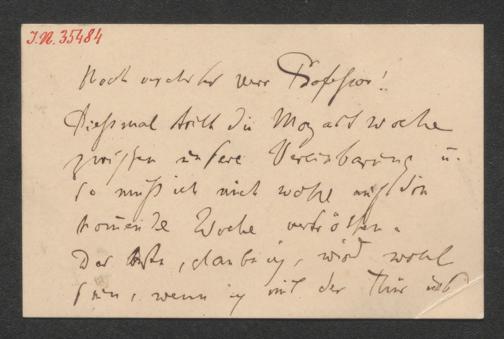 J.N. 35484
Hochverehrter Herr Professor!
Diesmal tritt die Mozartwoche
zwischen unsere Vereinbarung u.
so muß ich mich wohl auf die
kommende Woche vertrösten.
Das Beste, glaube ich, wird wohl
sein, wenn ich mit der Thür ins